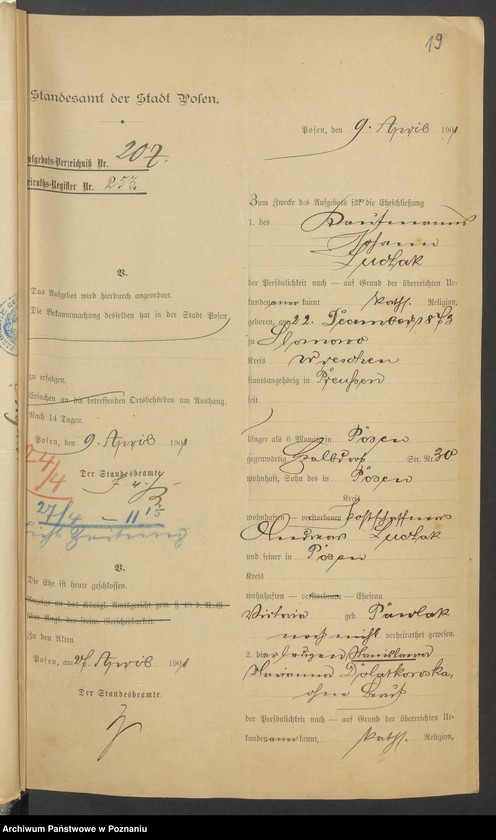 19
Standesamt der Stadt Posen.
Posen, den 9. April 1901
Aufgebots-Verzeichniß Nr. 207.
Heiraths-Register Nr. 253.
V.
Das Aufgebot wird hierdurch angeordnet.
Die Bekanntmachung desselben hat in der Stadt Posen,
zu erfolgen.
Ersuchen an die betreffenden Ortsbehörden um Aushang.
Nach 14 Tagen.
Posen, den 9. April 1901
Der Standesbeamte
24/4
27/4 – 11 15
V.
Die Ehe ist heute geschlossen.
Anzeige an das Königl. Amtsgericht gem. § 49 b. R.-G.
Zu den Akten
Posen, am 27. April 1901
Der Standesbeamte.
Zum Zwecke des Aufgebots für die Eheschließung
1. des Kaufmanns
Johann
Ludlak
der Persönlichkeit nach — auf Grund der überreichten Ur-
kunden anerkannt, kath. Religion,
geboren, am 22. December 1873
zu Slomowo
Kreis Wreschen
staatsangehörig in Preußen
seit
länger als 6 Monat in Posen
gegenwärtig Halbdorf Str. Nr. 30
wohnhaft, Sohn des in Posen
Kreis
wohnhaften — verstorbenen Postschaffners
Andreas Ludlak
und seiner in Posen
Kreis
wohnhaften — verstorbenen — Ehefrau
Victoria geb. Pawlak
noch nicht verheirathet gewesen.
2. der Stanislawa
Marianna
ohne Beruf
der Persönlichkeit nach — auf Grund der überreichten Ur-
kunden anerkannt, kath. Religion,
Archiwum Państwowe w Poznaniu
Archiwum Państwowe w Poznaniu